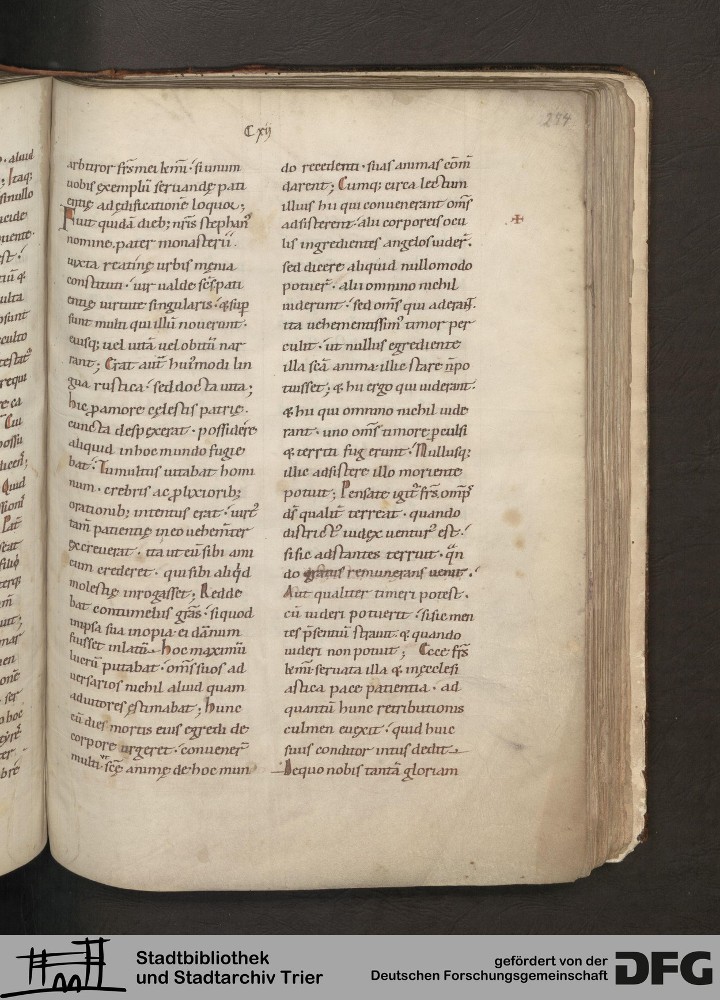 C xij
284
arbitror frs̄ mei kem̄i · si unum
uobis exemplū seruandę pati
entię ad ędificationē loquor;
Fuit quidā dieb; nr̄is stephan᷒
nomine. pater monasterii.
iuxta reatinę urbis męnia
constituti · uir ualde scs̄ pati
entię uirtute singularis · & sup̄
sunt multi qui illū nouerunt ·
eiusq; uel uitā uel obitū nar
rant; Erat aut̄ hui᷒modi lin
gua rustica · sed docta uita;
hic p̱ amore cęlestis patrię.
cuncta despexerat · possidere
aliquid in hoc mundo fugie
bat · Tumultus uitabat homi
num · crebris ac ꝓlixiorib;
orationib; intentus erat · uirt᷒
tam̄ patientię in eo uehem̄ter
excreuerat · ita ut eū sibi ami
cum crederet · qui sibi aliq̇d
molestię inrogasset; Redde
bat contumeliis gr̄as · si quod
in ipsa sua inopia ei dānum
fuisset inlatū hoc maximū
lucrū putabat · om̄s suos ad
uersarios nichil aliud quam
adiutores ęstimabat; hunc
cū dies mortis eius egredi de
corpore urgeret · conuener̄
multi · ut scē animę de hoc mun
do recedenti · suas animas com̄
darent; Cumq; circa lectum
illius hii qui conuenerant om̄s
adsisterent · alii corporeis ocu
lis ingredientes angelos uider̄.
sed dicere aliquid nullo modo
potuer̄ · alii omnino nichil
uiderunt · sed om̄s qui aderan̄t.
ita uehementissim᷒ timor per
culit · ut nullus egrediente
illa scā anima illic stare n̄ po
tuisset; & hi ergo qui uiderant ·
& hii qui omnino nichil uide
rant · uno om̄s timore p̱culsi
& territi fugerunt · Nullusq;
illic adsistere illo moriente
potuit; Pensate igit̄ frs̄. omp̄s
ds̄ qualit̄ terreat · quando
district᷒ iudex uentur᷒ est ·
si sic adstantes terruit · q̄n
do gratus remunerans uenit ·
Aut qualiter timeri potest ·
cū uideri potuerit · si sic men
tes p̄sentiū strauit · & quando
uideri non potuit; Ecce frs̄
kem̄i seruata illa & in ęcclesi
astica pace patientia · ad
quantū hunc retributionis
culmen euexit · quid huic
suus conditor intus dedit
De quo nobis tantā gloriam
Stadtbibliothek
und Stadtarchiv Trier
gefördert von der
Deutschen Forschungsgemeinschaft
DFG